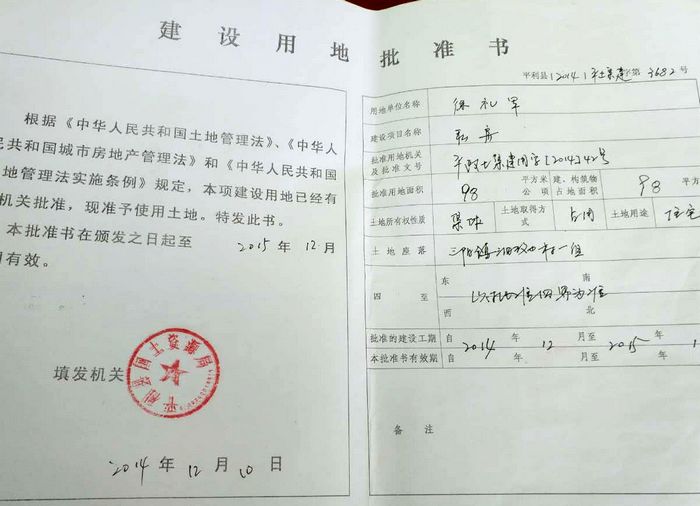 建设用地批准书
根据《中华人民共和国土地管理法》、《中华人
民共和国城市房地产管理法》和《中华人民共和国
地管理法实施条例》规定，本项建设用地已经有
机关批准，现准予使用土地。特发此书。
本批准书在颁发之日起至 2015 年 12 月
有效。
填发机关
平利县国土资源局
2014 年 12 月 10 日
平利县〔2014〕平土集建字第3682号
用地单位名称 徐礼军
建设项目名称 私房
批准用地机关及批准文号 平政土集建用字[2014]42号
批准用地面积 98 平方米 公顷 建、构筑物占地面积 98 平方
土地所有权性质 集体 土地取得方式 占用 土地用途 住宅
土地座落 三阳镇 村一组
四至 东 南 西 北 界为准
批准的建设工期 自 2014 年 12 月至 2015 年 1
本批准书有效期 自 年 月至 年
备注